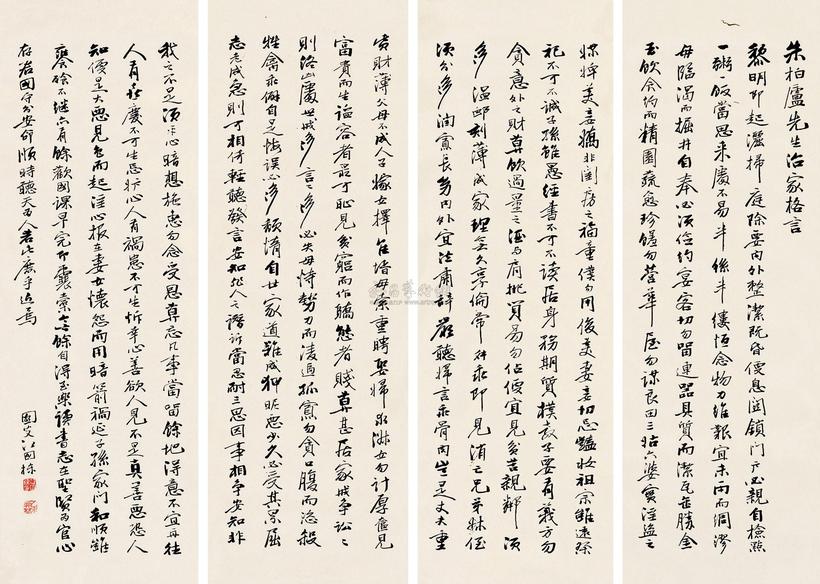 朱柏盧先生治家格言
黎明即起灑掃庭除要內外整潔既昏便息關鎖門戶必親自檢點
一粥一飯當思來處不易半絲半縷恆念物力維艱宜未雨而綢繆
毋臨渴而掘井自奉必須儉約宴客切勿留連器具質而潔瓦缶勝金
玉飲食約而精園蔬愈珍饈勿營華屋勿謀良田三姑六婆實淫盜之
媒婢美妾嬌非閨房之福童僕勿用俊美妻妾切忌豔妝祖宗雖遠祭
祀不可不誠子孫雖愚經書不可不讀居身務期質樸教子要有義方勿
貪意外之財莫飲過量之酒與肩挑貿易勿佔便宜見貧苦親鄰須
多溫卹刻薄成家理無久享倫常舛乖即見消亡兄弟叔侄
須分多潤寡長幼內外宜法肅辭嚴聽婦言乖骨肉豈是丈夫重
貲財薄父母不成人子嫁女擇佳婿毋索重聘娶婦求淑女勿計厚奩見
富貴而生諂容者最可恥見貧窮而作驕態者賤莫甚居家戒爭訟訟
則終凶處世戒多言言多必失毋恃勢力而凌逼孤寡勿貪口腹而恣殺
牲禽乖僻自是悔誤必多頹惰自甘家道難成狎昵惡少久必受其累屈
志老成急則可相倚輕聽發言安知非人之譖訴當忍耐三思因事相爭安知非
我之不是須平心暗想施惠勿念受恩莫忘凡事當留餘地得意不宜再往
人有喜慶不可生忌妒心人有禍患不可生忻幸心善欲人見不是真善惡恐人
知便是大惡見色而起淫心報在妻女懷怨而用暗箭禍延子孫家門和順雖
饔飧不繼亦有餘歡國課早完即囊橐無餘自得至樂讀書志在聖賢為官心
存治國守分安命順時聽天為人若此庶乎近焉